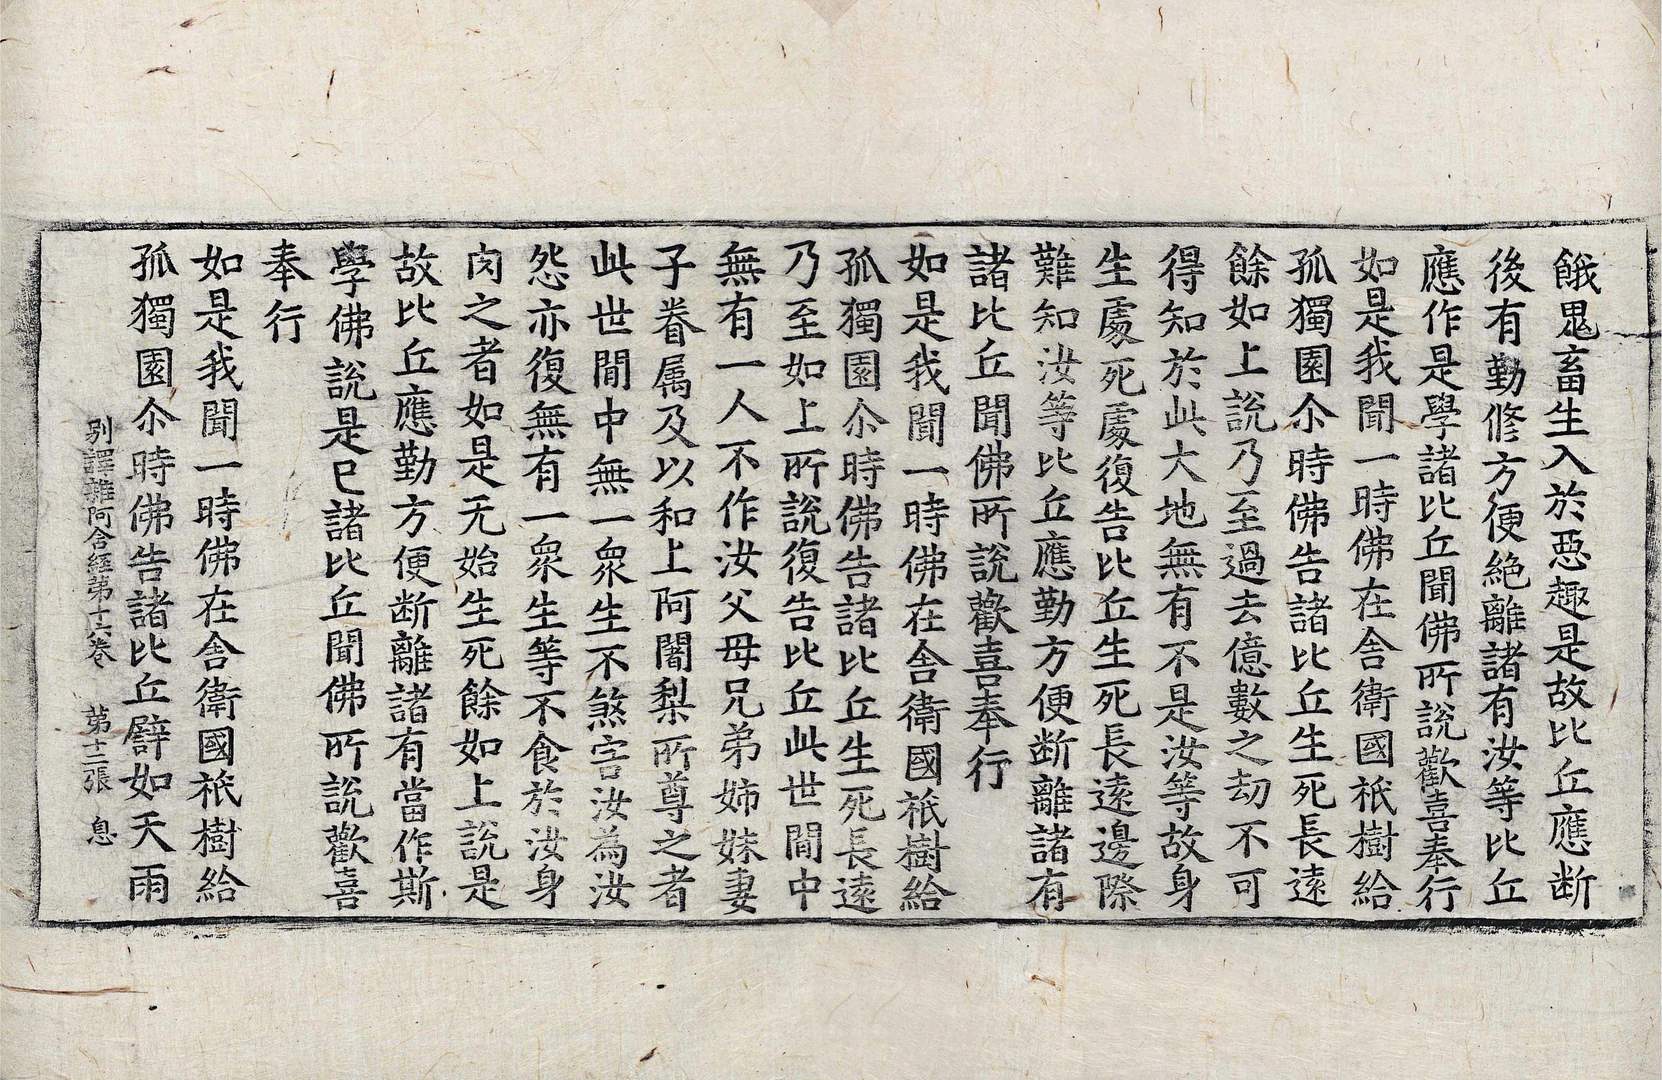 餓鬼畜生入於惡趣是故比丘應断
後有勤修方便絶離諸有汝等比丘
應作是學諸比丘聞佛所說歡喜奉行
如是我聞一時佛在舍衛國祇樹給
孤獨園尒時佛告諸比丘生死長遠
餘如上說乃至過去億數之劫不可
得知於此大地無有不是汝等故身
生處死處復告比丘生死長遠邊際
難知汝等比丘應勤方便断離諸有
諸比丘聞佛所說歡喜奉行
如是我聞一時佛在舍衛國祇樹給
孤獨園尒時佛告諸比丘生死長遠
乃至如上所說復告比丘此世間中
無有一人不作汝父母兄弟姉妹妻
子眷属及以和上阿闍梨所尊之者
此世間中無一衆生不煞害汝為汝
怨亦復無有一衆生等不食於汝身
肉之者如是无始生死餘如上說是
故比丘應勤方便断離諸有當作斯
學佛說是已諸比丘聞佛所說歡喜
奉行
如是我聞一時佛在舍衛國祇樹給
孤獨園尒時佛告諸比丘譬如天雨
別譯雜阿含經第十六卷 第十二張 息